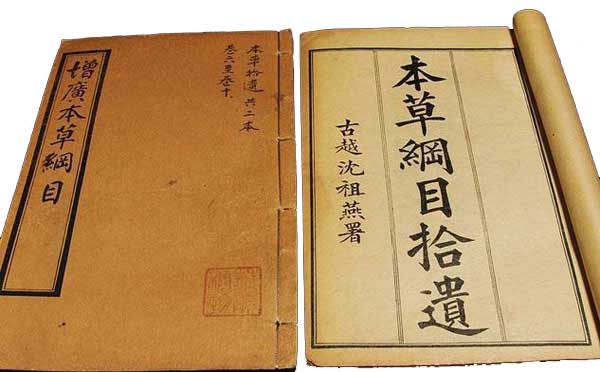 增廣本草綱目
本草拾遺 共二本
卷六至卷十
本草綱目拾遺
古越沈祖燕署